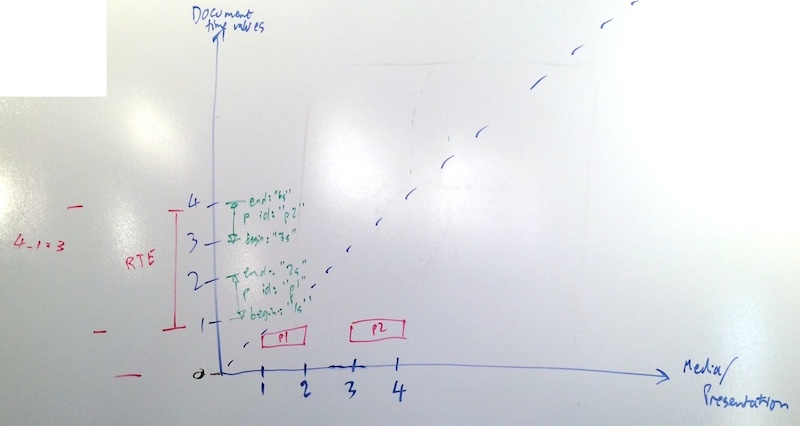 Document
time values
4
end: "4s"
p id: "p2"
3
begin: "3s"
4-1=3
RTE
end: "2s"
2
p id: "p1"
begin: "1s"
1
p1
p2
0
1
2
3
4
Media/
Presentation